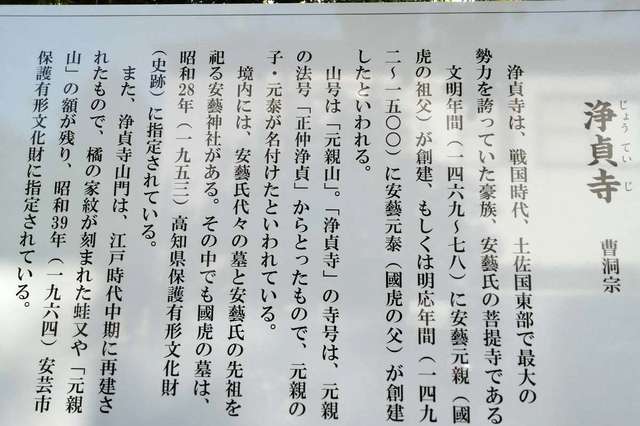 じょうていじ
浄貞寺 曹洞宗
浄貞寺は、戦国時代、土佐国東部で最大の
勢力を誇っていた豪族、安藝氏の菩提寺である
文明年間（一四六九～七八）に安藝元親（國
虎の祖父）が創建、もしくは明応年間（一四九
二～一五〇〇）に安藝元泰（國虎の父）が創建
したといわれる。
山号は「元親山」。「浄貞寺」の寺号は、元親
の法号「正仲浄貞」からとったもので、元親の
子・元泰が名付けたといわれている。
境内には、安藝氏代々の墓と安藝氏の先祖を
祀る安藝神社がある。その中でも國虎の墓は、
昭和28年（一九五三）高知県保護有形文化財
（史跡）に指定されている。
また、浄貞寺山門は、江戸時代中期に再建さ
れたもので、橘の家紋が刻まれた蛙又や「元親
山」の額が残り、昭和39年（一九六四）安芸市
保護有形文化財に指定されている。